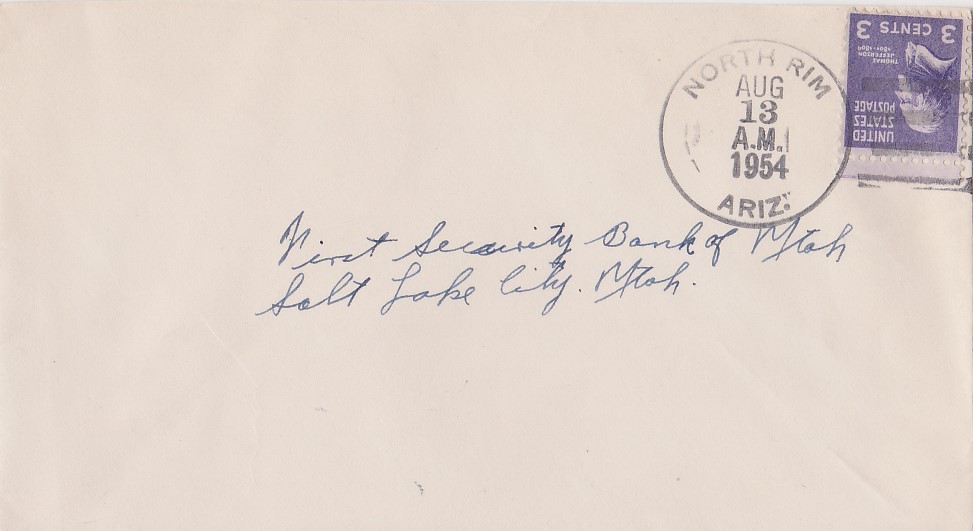 NORTH RIM
AUG
13
A.M.
1954
ARIZ.
3 CENTS 3
THOMAS
JEFFERSON
1801-1809
UNITED
STATES
POSTAGE
First Security Bank of Utah
Salt Lake City. Utah.